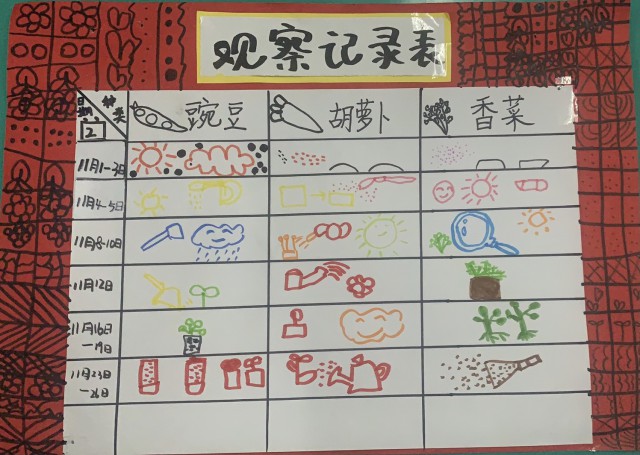 观察记录表
种类
日期
豌豆
胡萝卜
香菜
11月1-3日
11月4-5日
11月8-10日
11月12日
11月16日
-19日
11月23日
-26日